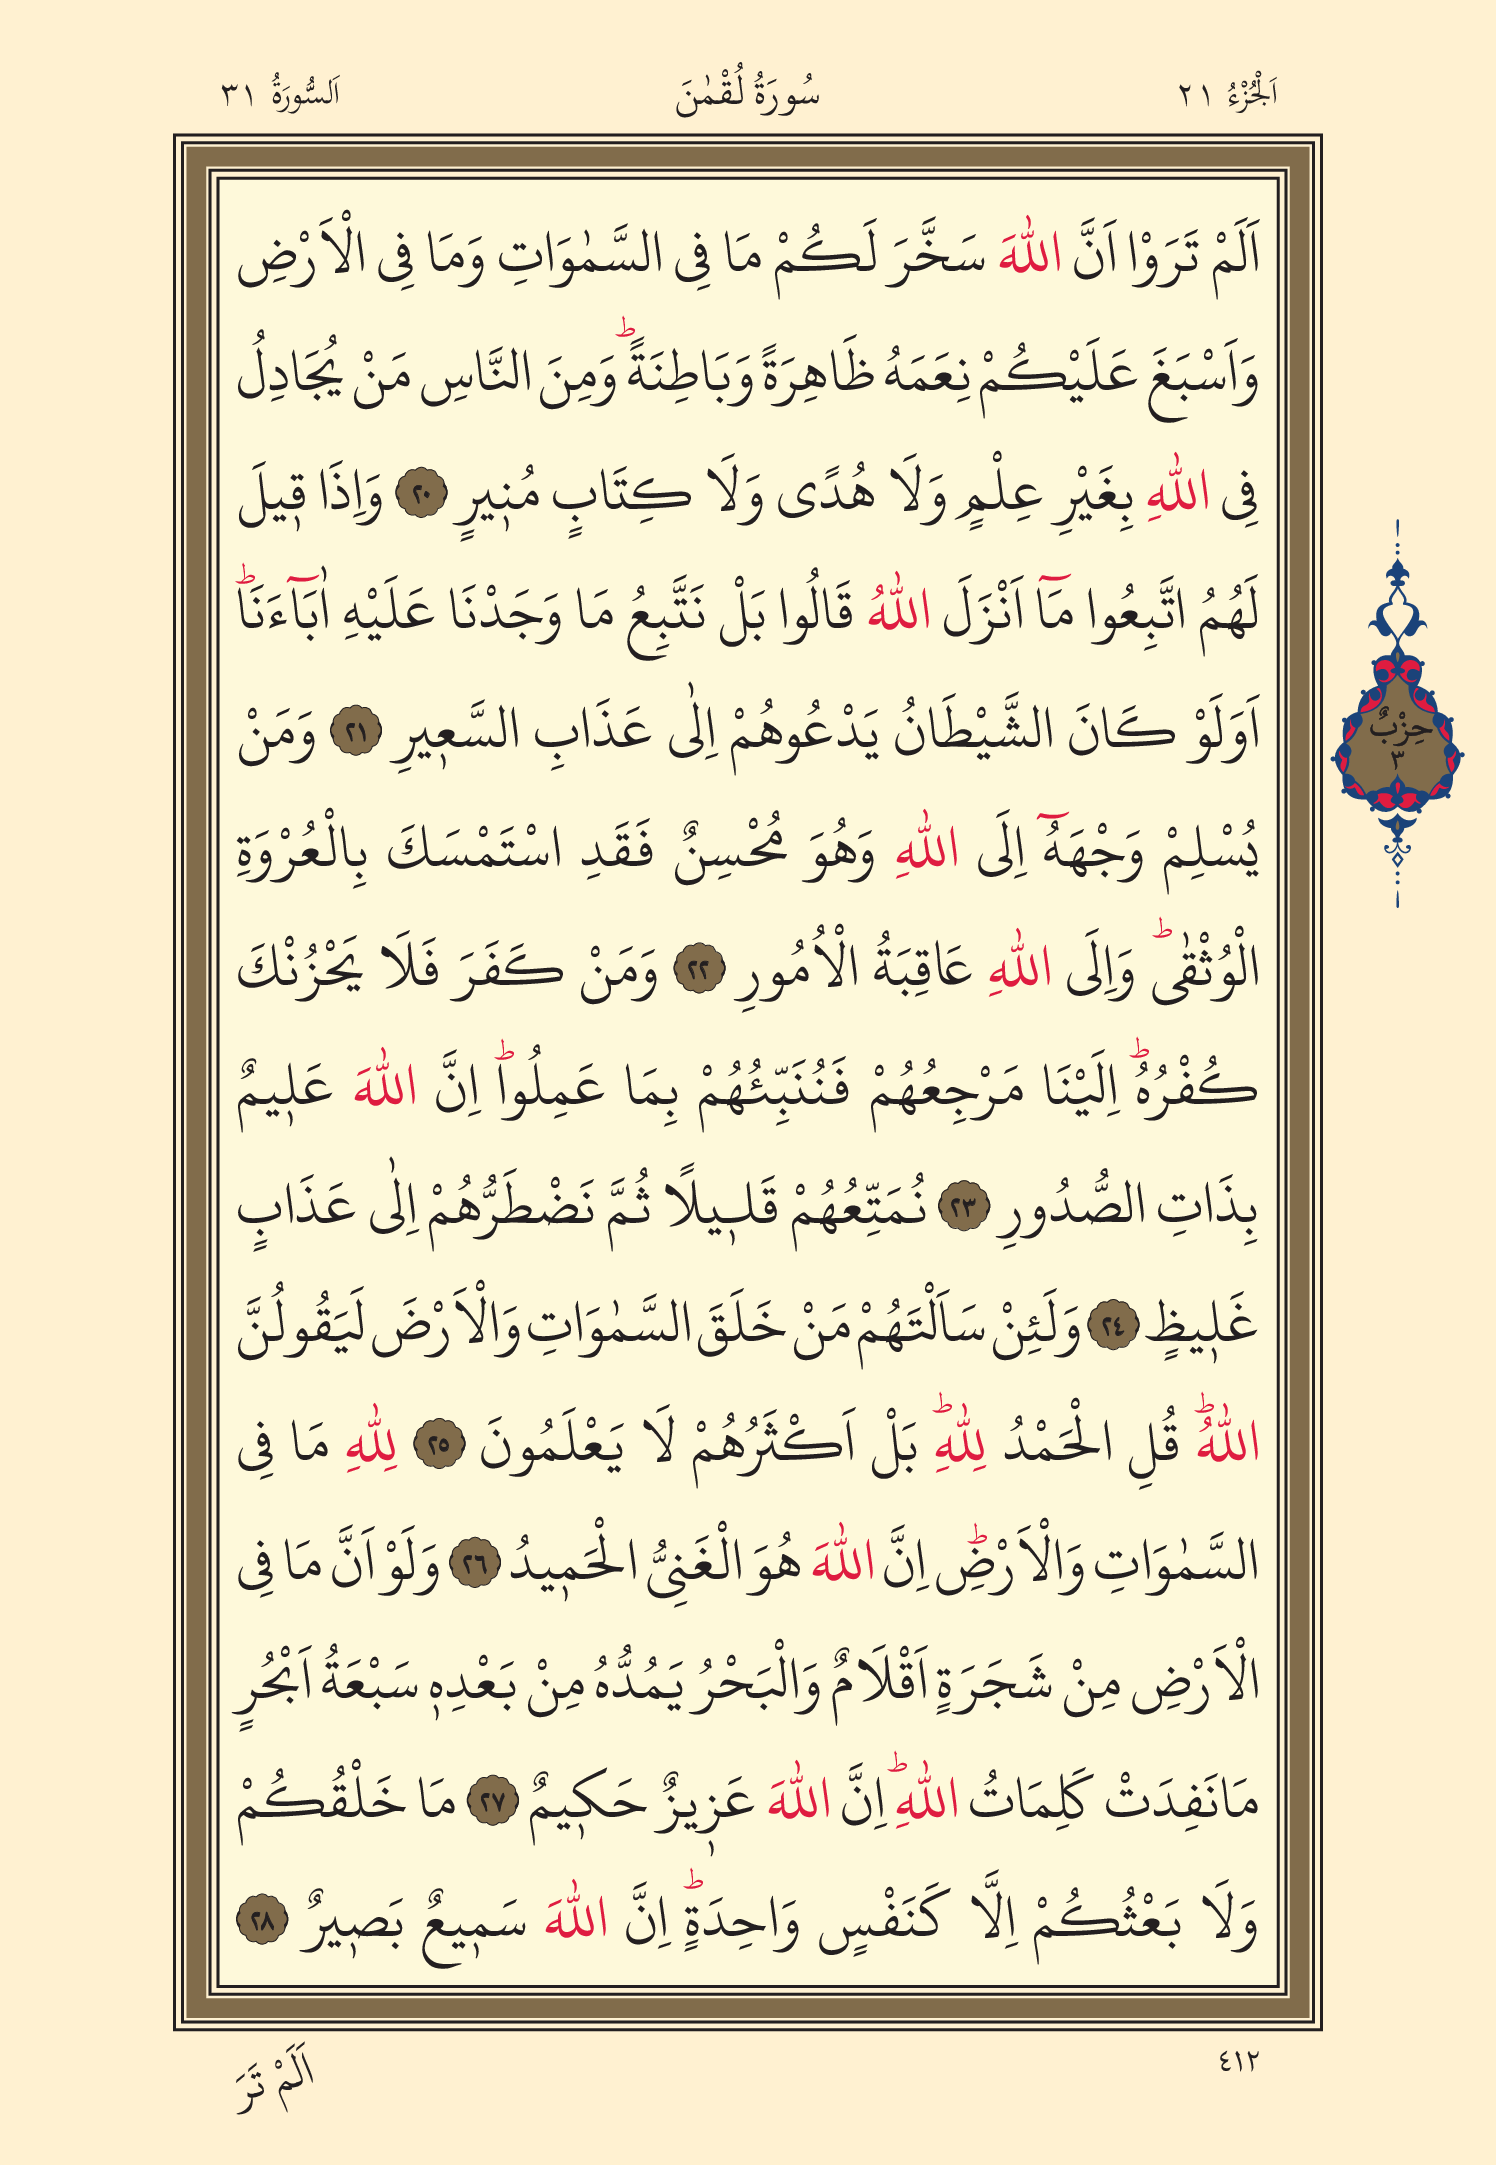 اَلْجُزْءُ ٢١ سُورَةُ لُقْمٰنَ اَلسُّورَةُ ٣١
اَلَمْ تَرَوْا اَنَّ اللّٰهَ سَخَّرَ لَكُمْ مَا فِى السَّمٰوَاتِ وَمَا فِى الْاَرْضِ
وَاَسْبَغَ عَلَيْكُمْ نِعَمَهُ ظَاهِرَةً وَبَاطِنَةًؕ وَمِنَ النَّاسِ مَنْ يُجَادِلُ
فِى اللّٰهِ بِغَيْرِ عِلْمٍ وَلَا هُدًى وَلَا كِتَابٍ مُنٖيرٍ ٢٠ وَاِذَا قٖيلَ
لَهُمُ اتَّبِعُوا مَٓا اَنْزَلَ اللّٰهُ قَالُوا بَلْ نَتَّبِعُ مَا وَجَدْنَا عَلَيْهِ اٰبَٓاءَنَاؕ
اَوَلَوْ كَانَ الشَّيْطَانُ يَدْعُوهُمْ اِلٰى عَذَابِ السَّعٖيرِ ٢١ وَمَنْ
يُسْلِمْ وَجْهَهُٓ اِلَى اللّٰهِ وَهُوَ مُحْسِنٌ فَقَدِ اسْتَمْسَكَ بِالْعُرْوَةِ
الْوُثْقٰىؕ وَاِلَى اللّٰهِ عَاقِبَةُ الْاُمُورِ ٢٢ وَمَنْ كَفَرَ فَلَا يَحْزُنْكَ
كُفْرُهُؕ اِلَيْنَا مَرْجِعُهُمْ فَنُنَبِّئُهُمْ بِمَا عَمِلُواؕ اِنَّ اللّٰهَ عَلٖيمٌ
بِذَاتِ الصُّدُورِ ٢٣ نُمَتِّعُهُمْ قَلٖيلًا ثُمَّ نَضْطَرُّهُمْ اِلٰى عَذَابٍ
غَلٖيظٍ ٢٤ وَلَئِنْ سَاَلْتَهُمْ مَنْ خَلَقَ السَّمٰوَاتِ وَالْاَرْضَ لَيَقُولُنَّ
اللّٰهُؕ قُلِ الْحَمْدُ لِلّٰهِؕ بَلْ اَكْثَرُهُمْ لَا يَعْلَمُونَ ٢٥ لِلّٰهِ مَا فِى
السَّمٰوَاتِ وَالْاَرْضِؕ اِنَّ اللّٰهَ هُوَ الْغَنِىُّ الْحَمٖيدُ ٢٦ وَلَوْ اَنَّ مَا فِى
الْاَرْضِ مِنْ شَجَرَةٍ اَقْلَامٌ وَالْبَحْرُ يَمُدُّهُ مِنْ بَعْدِهٖ سَبْعَةُ اَبْحُرٍ
مَانَفِدَتْ كَلِمَاتُ اللّٰهِؕ اِنَّ اللّٰهَ عَزٖيزٌ حَكٖيمٌ ٢٧ مَا خَلْقُكُمْ
وَلَا بَعْثُكُمْ اِلَّا كَنَفْسٍ وَاحِدَةٍؕ اِنَّ اللّٰهَ سَمٖيعٌ بَصٖيرٌ ٢٨
حِزْبٌ
٣
٤١٢
اَلَمْ تَرَ